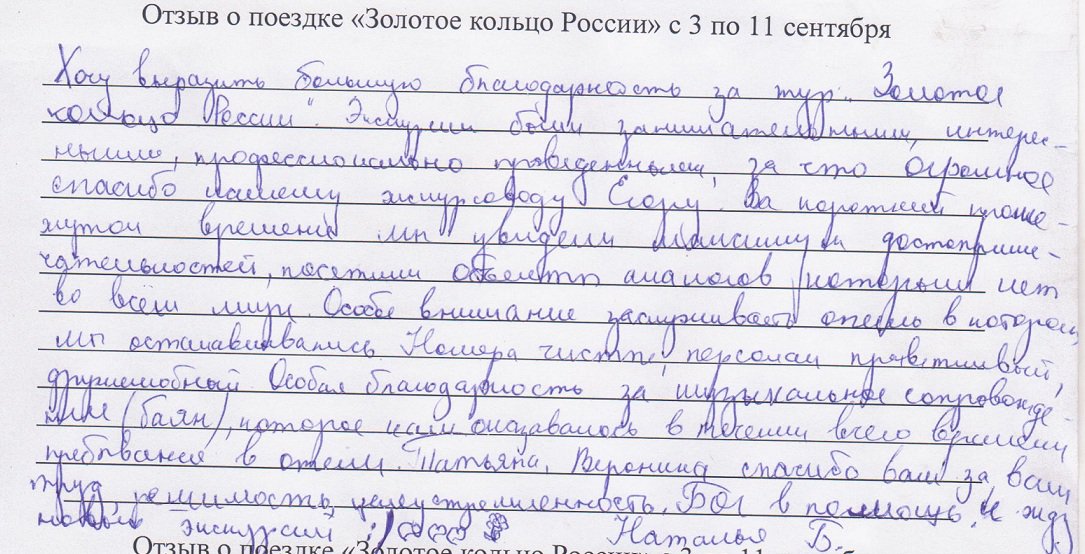 Отзыв о поездке «Золотое кольцо России» с 3 по 11 сентября
Хочу выразить большую благодарность за тур „Золотое
кольцо России“. Экскурсии были занимательными, интерес-
ными, профессионально проведенными, за что огромное
спасибо нашему экскурсоводу Егору. За короткий проме-
жуток времени мы увидели максимум достоприме-
чательностей, посетили объекты аналогов которым нет
во всём мире. Особое внимание заслуживает отель в котором
мы останавливались. Номера чисты, персонал приветливый,
дружелюбный. Особая благодарность за музыкальное сопровожде-
ние (баян), которое нам оказывалось в течении всего времени
пребывания в отеле. Татьяна, Вероника спасибо вам за ваш
труд, решимость, целеустремленность. Бог в помощь. И жду
новых экскурсий :) Наталья Б.
Отзыв о поездке «Золотое кольцо России» с 3 по 11